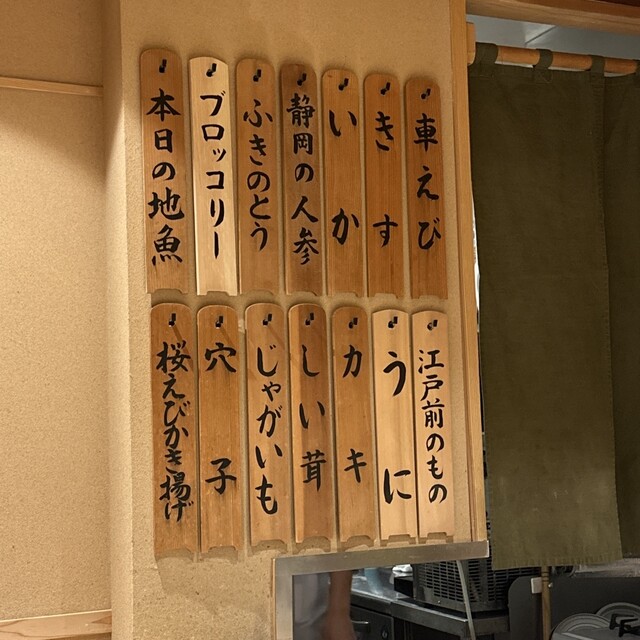 車えび
きす
いか
静岡の人参
ふきのとう
ブロッコリー
本日の地魚
江戸前のもの
うに
カキ
しい茸
じゃがいも
穴子
桜えびかき揚げ